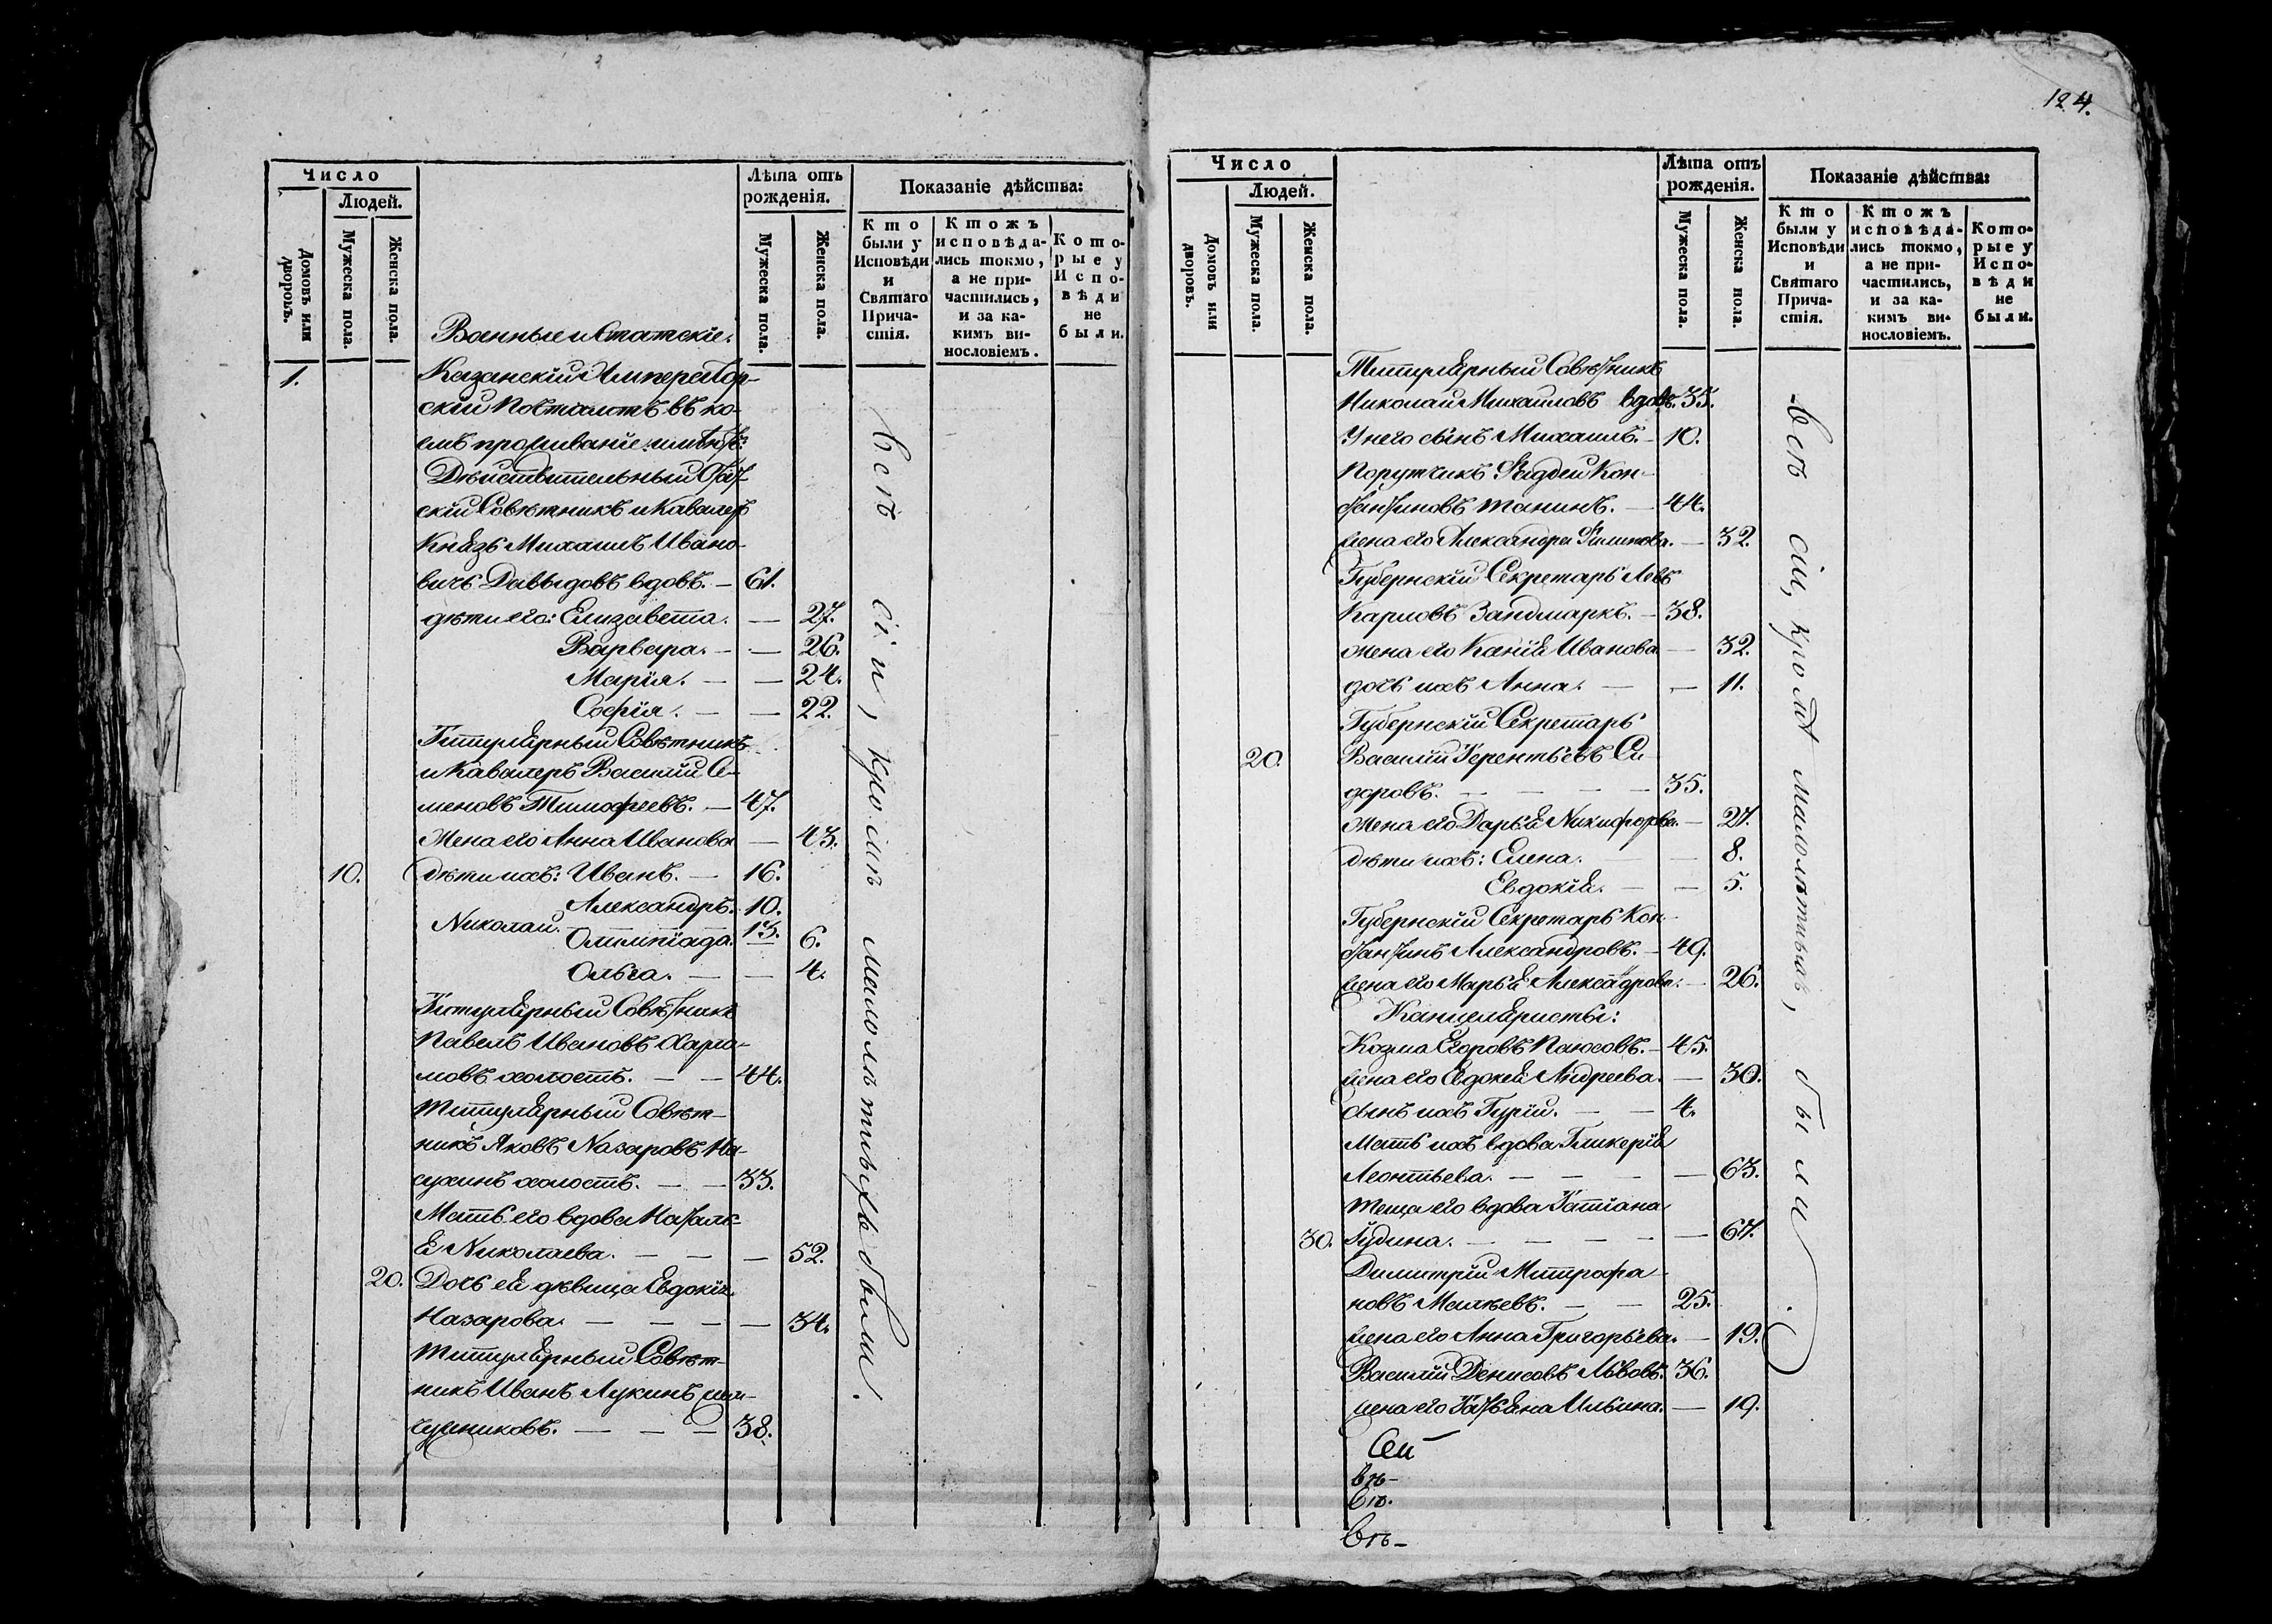 Число
Людей.
Домовъ или дворовъ.
Мужеска пола.
Женска пола.
Лѣта отъ рожденія.
Мужеска пола.
Женска пола.
Показаніе дѣйства:
Кто были у Исповѣди и Святаго Причастія.
Ктожъ исповѣдались токмо, а не причастились, и за какимъ винословіемъ.
Которые у Исповѣди не были.
Военные и Статскіе.
1. Казанскій Император-
скій Почтамтъ въ ко-
емъ проживаніе имѣютъ:
Дѣйствительный Стат-
скій Совѣтникъ и Кавалеръ
Князь Михаилъ Ивано-
вичь Давыдовъ вдовъ. — 61.
дѣти его: Елизавета. — 27.
Варвара. — — 26.
Марія. — — 24.
Софія. — — 22.
Титулярный Совѣтникъ
и Кавалеръ Василій Се-
меновъ Тимофеевъ. — 47.
Жена его Анна Иванова — 43.
10. дѣти ихъ: Иванъ. — 16.
Александръ. 10.
Николай. 13.
Олимпіада. — 6.
Ольга. — — 4.
Титулярный Совѣтникъ
Павелъ Ивановъ Харла-
мовъ холостъ. — — 44.
Титулярный Совѣт-
никъ Яковъ Назаровъ
холостъ. — — 33.
Мать его вдова Наталь-
я Николаева. — — — 52.
20. Дочь ея дѣвица Евдокія
Назарова. — — — — 34.
Титулярный Совѣт-
никъ Иванъ Лукинъ
— — — 38.
всѣ сіи, кромѣ малолѣтныхъ были.
124.
Число
Людей.
Домовъ или дворовъ.
Мужеска пола.
Женска пола.
Лѣта отъ рожденія.
Мужеска пола.
Женска пола.
Показаніе дѣйства:
Кто были у Исповѣди и Святаго Причастія.
Ктожъ исповѣдались токмо, а не причастились, и за какимъ винословіемъ.
Которые у Исповѣди не были.
Титулярный Совѣтникъ
Николай Михаиловъ вдовъ. 35.
У него сынъ Михаилъ. — 10.
Порутчикъ Фаддей Кон-
стантиновъ Танинъ. — 44.
жена его Александра Филипова. — 32.
Губернскій Секретарь Левъ
Карловъ Зандмаркъ. — 38.
жена его Ксенія Иванова — 32.
дочь ихъ Анна. — — 11.
Губернскій Секретарь
20. Василій Терентьевъ Си-
доровъ. — — — — 35.
жена его Дарья Никифорова. — 27.
дѣти ихъ: Елена. — — 8.
Евдокія. — — 5.
Губернскій Секретарь Кон-
стантинъ Александровъ. — 49.
жена его Марья Александрова. — 26.
Канцеляристы:
Козма Егоровъ Полюсовъ. — 45.
жена его Евдокея Андреева. — 30.
сынъ ихъ Гурій. — — 4.
Мать ихъ вдова Гликерія
Леонтьева. — — — — 63.
Теща его вдова Татіана
30. Гудина. — — — — — 67.
Димитрій Митрофа-
новъ Малѣевъ. — — 25.
жена его Анна Григорьева. — 19.
Василій Денисовъ Львовъ. 36.
жена его Татьяна Ильина. — 19.
всѣ сіи, кромѣ малолѣтныхъ, были.